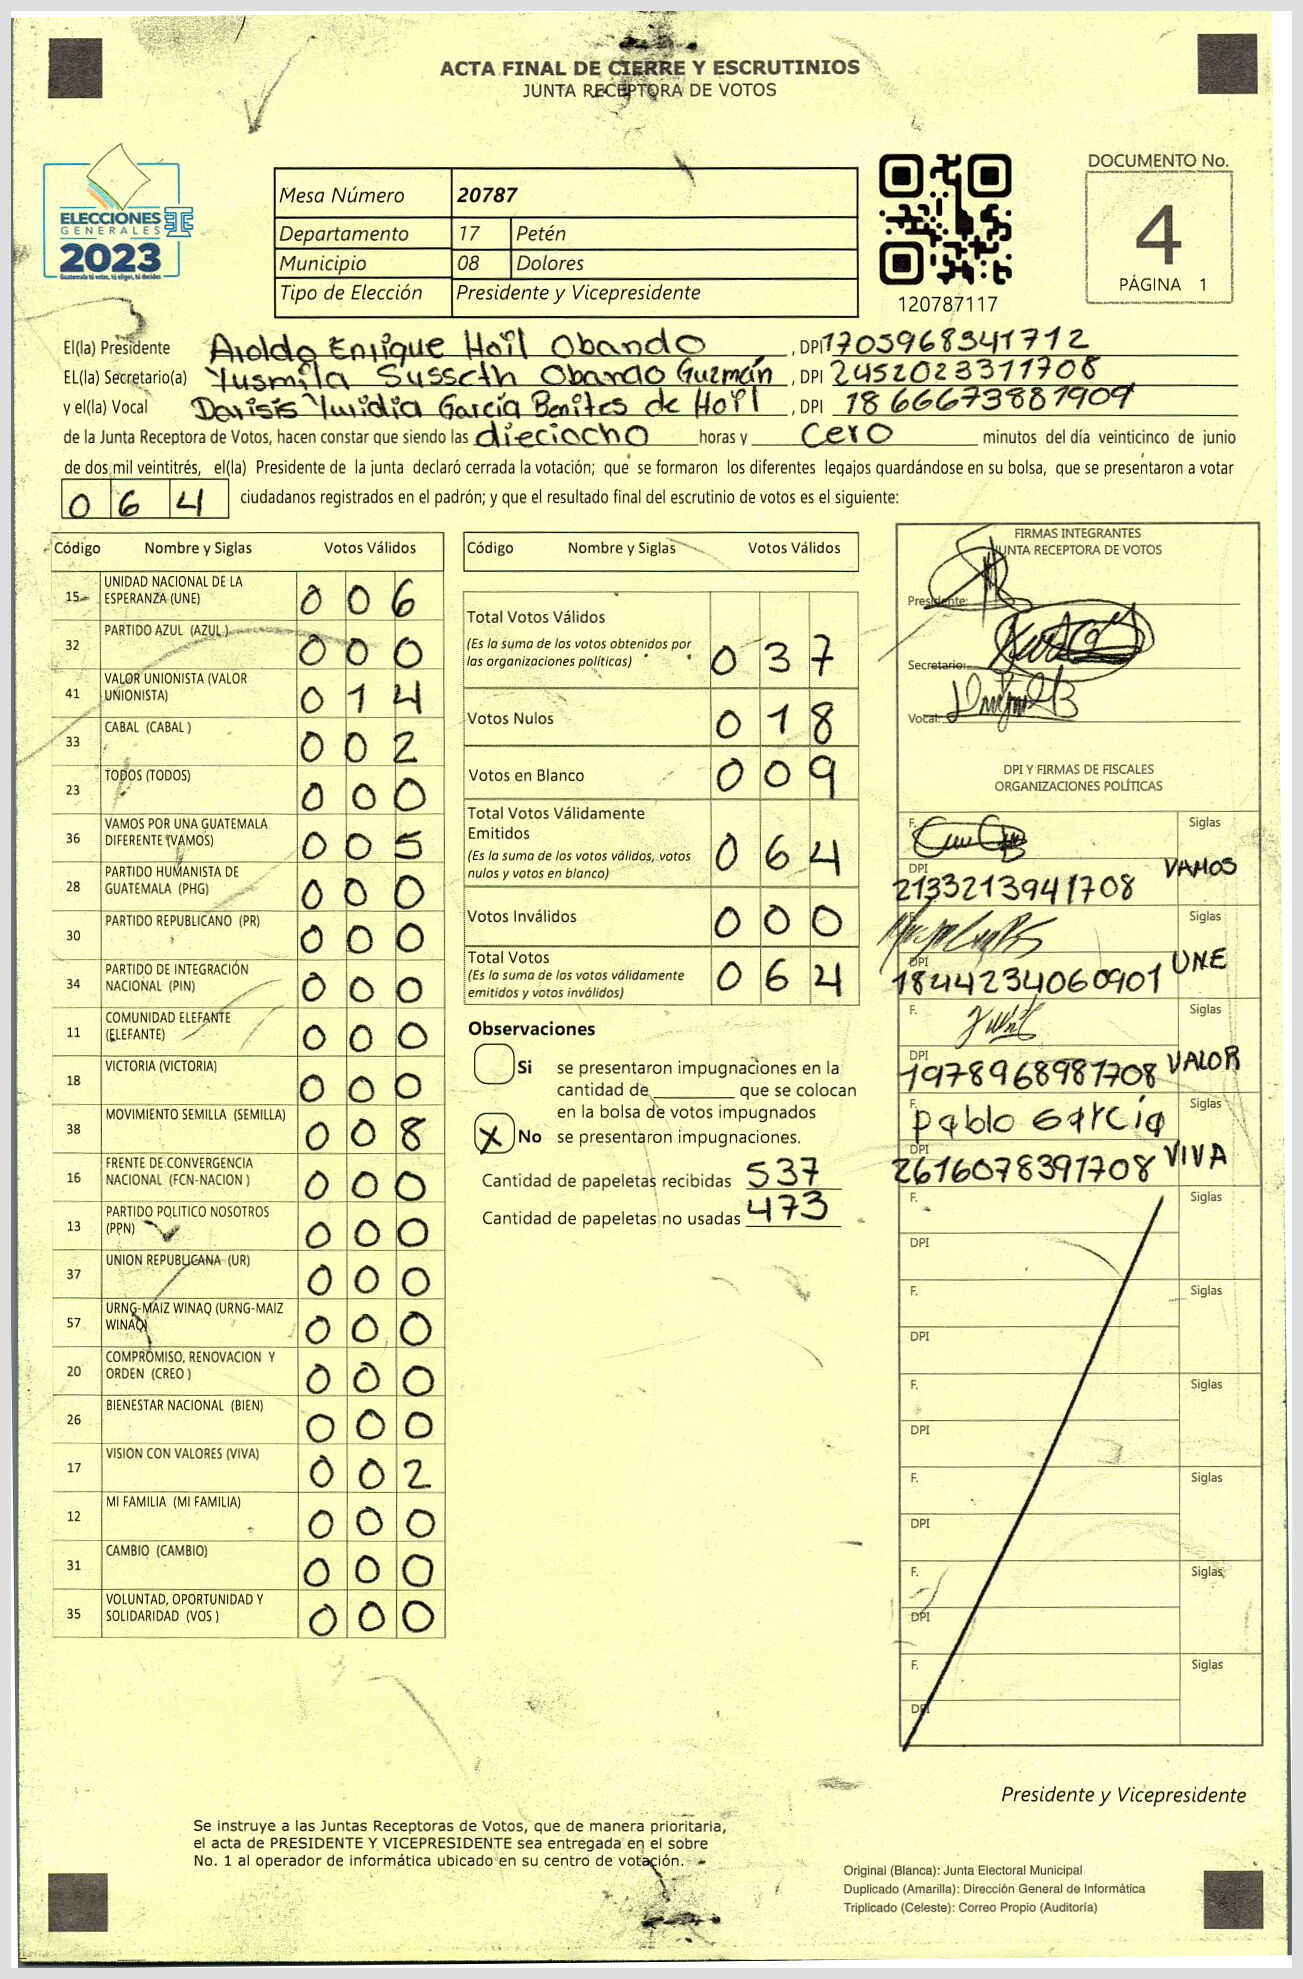 ACTA FINAL DE CIERRE Y ESCRUTINIOS
JUNTA RECEPTORA DE VOTOS
ELECCIONES
GENERALES
2023
Guatemala tú votas, tú eliges, tú decides
Mesa Número 20787
Departamento 17 Petén
Municipio 08 Dolores
Tipo de Elección Presidente y Vicepresidente
120787117
DOCUMENTO No.
4
PÁGINA 1
El(la) Presidente Aroldo Enrique Hoil Obando , DPI 1705968341712
EL(la) Secretario(a) Yusmila Susseth Obando Guzmán , DPI 2452023311708
y el(la) Vocal Darisis Yuridia García Benites de Hoil , DPI 1866673881909
de la Junta Receptora de Votos, hacen constar que siendo las dieciocho horas y cero minutos del día veinticinco de junio
de dos mil veintitrés, el(la) Presidente de la junta declaró cerrada la votación; que se formaron los diferentes legajos guardándose en su bolsa, que se presentaron a votar
064 ciudadanos registrados en el padrón; y que el resultado final del escrutinio de votos es el siguiente:
Código Nombre y Siglas Votos Válidos
15 UNIDAD NACIONAL DE LA ESPERANZA (UNE) 006
32 PARTIDO AZUL (AZUL ) 000
41 VALOR UNIONISTA (VALOR UNIONISTA) 014
33 CABAL (CABAL ) 002
23 TODOS (TODOS) 000
36 VAMOS POR UNA GUATEMALA DIFERENTE (VAMOS) 005
28 PARTIDO HUMANISTA DE GUATEMALA (PHG) 000
30 PARTIDO REPUBLICANO (PR) 000
34 PARTIDO DE INTEGRACIÓN NACIONAL (PIN) 000
11 COMUNIDAD ELEFANTE (ELEFANTE) 000
18 VICTORIA (VICTORIA) 000
38 MOVIMIENTO SEMILLA (SEMILLA) 008
16 FRENTE DE CONVERGENCIA NACIONAL (FCN-NACION ) 000
13 PARTIDO POLITICO NOSOTROS (PPN) 000
37 UNION REPUBLICANA (UR) 000
57 URNG-MAIZ WINAQ (URNG-MAIZ WINAQ) 000
20 COMPROMISO, RENOVACION Y ORDEN (CREO ) 000
26 BIENESTAR NACIONAL (BIEN) 000
17 VISION CON VALORES (VIVA) 002
12 MI FAMILIA (MI FAMILIA) 000
31 CAMBIO (CAMBIO) 000
35 VOLUNTAD, OPORTUNIDAD Y SOLIDARIDAD (VOS ) 000
Código Nombre y Siglas Votos Válidos
Total Votos Válidos
(Es la suma de los votos obtenidos por
las organizaciones políticas) 037
Votos Nulos 018
Votos en Blanco 009
Total Votos Válidamente
Emitidos
(Es la suma de los votos válidos, votos
nulos y votos en blanco) 064
Votos Inválidos 000
Total Votos
(Es la suma de los votos válidamente
emitidos y votos inválidos) 064
Observaciones
Si se presentaron impugnaciones en la
cantidad de que se colocan
en la bolsa de votos impugnados
X No se presentaron impugnaciones.
Cantidad de papeletas recibidas 537
Cantidad de papeletas no usadas 473
FIRMAS INTEGRANTES
JUNTA RECEPTORA DE VOTOS
Presidente:
Secretario:
Vocal:
DPI Y FIRMAS DE FISCALES
ORGANIZACIONES POLÍTICAS
F. Siglas
VAMOS
DPI 2133213941708
F. Siglas
UNE
DPI 1844234060901
F. Siglas
VALOR
DPI 1978968981708
F. Pablo García Siglas
VIVA
DPI 2616078391708
F. Siglas
DPI
F. Siglas
DPI
F. Siglas
DPI
F. Siglas
DPI
F. Siglas
DPI
F. Siglas
DPI
Presidente y Vicepresidente
Se instruye a las Juntas Receptoras de Votos, que de manera prioritaria,
el acta de PRESIDENTE Y VICEPRESIDENTE sea entregada en el sobre
No. 1 al operador de informática ubicado en su centro de votación.
Original (Blanca): Junta Electoral Municipal
Duplicado (Amarilla): Dirección General de Informática
Triplicado (Celeste): Correo Propio (Auditoría)